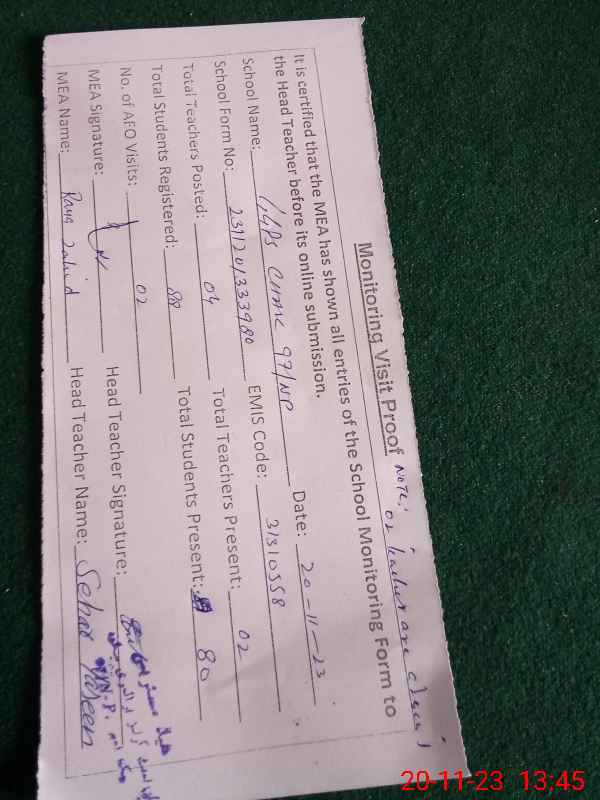 Monitoring Visit Proof NOTE:
02 teacher are
It is certified that the MEA has shown all entries of the School Monitoring Form to
the Head Teacher before its online submission.
School Name: GGPS 97/NP Date: 20-11-23
School Form No: 2311201333980 EMIS Code: 31310558
Total Teachers Posted: 04 Total Teachers Present: 02
Total Students Registered: 88 Total Students Present: 80
No. of AFO Visits: 02 Head Teacher Signature:
MEA Signature:
MEA Name: Rana Zahid Head Teacher Name: Sehar
20-11-23 13:45